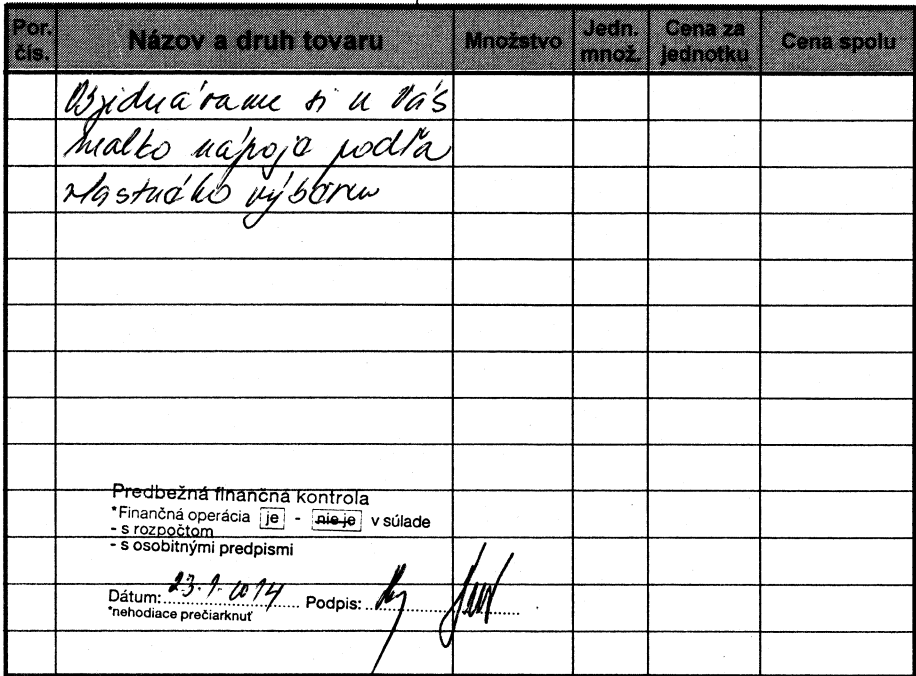 Por. čís. Názov a druh tovaru Množstvo Jedn. množ. Cena za jednotku Cena spolu
Objednávame si u Vás
nealko nápoje podľa
vlastného výberu
Predbežná finančná kontrola
*Finančná operácia je - nie je v súlade
- s rozpočtom
- s osobitnými predpismi
Dátum: 23.1.2014 Podpis:
*nehodiace prečiarknuť